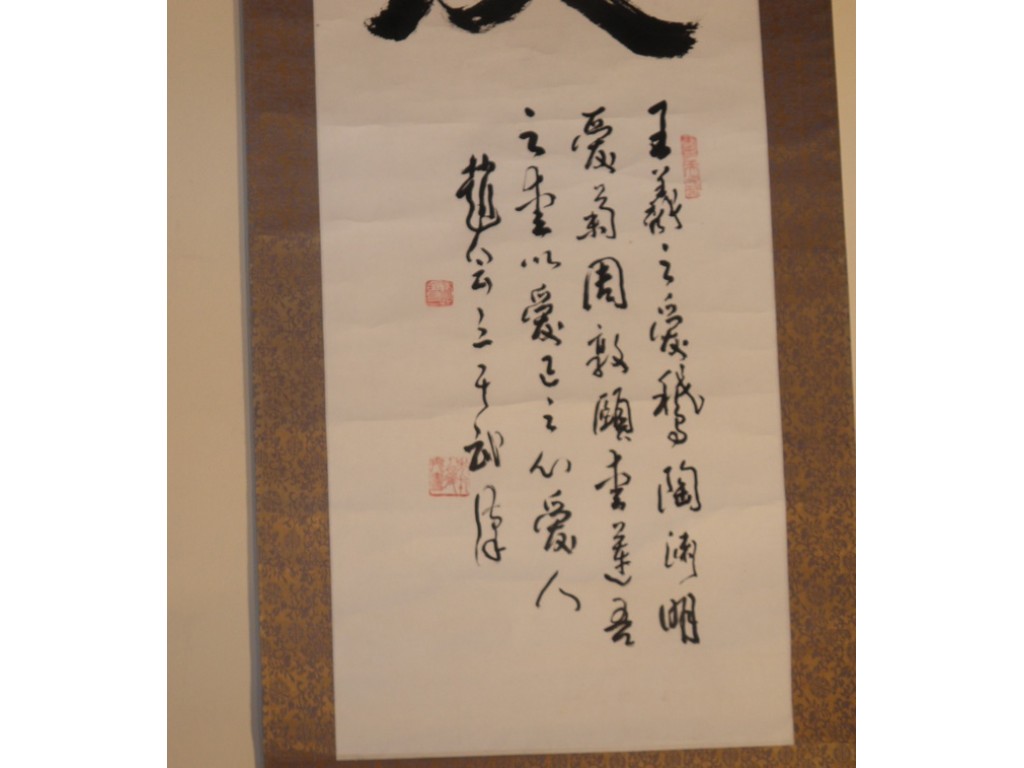 王羲之愛鵝陶渊明
愛菊周敦頤愛蓮吾
之愛以愛己之心愛人
趙雲三 於武漢